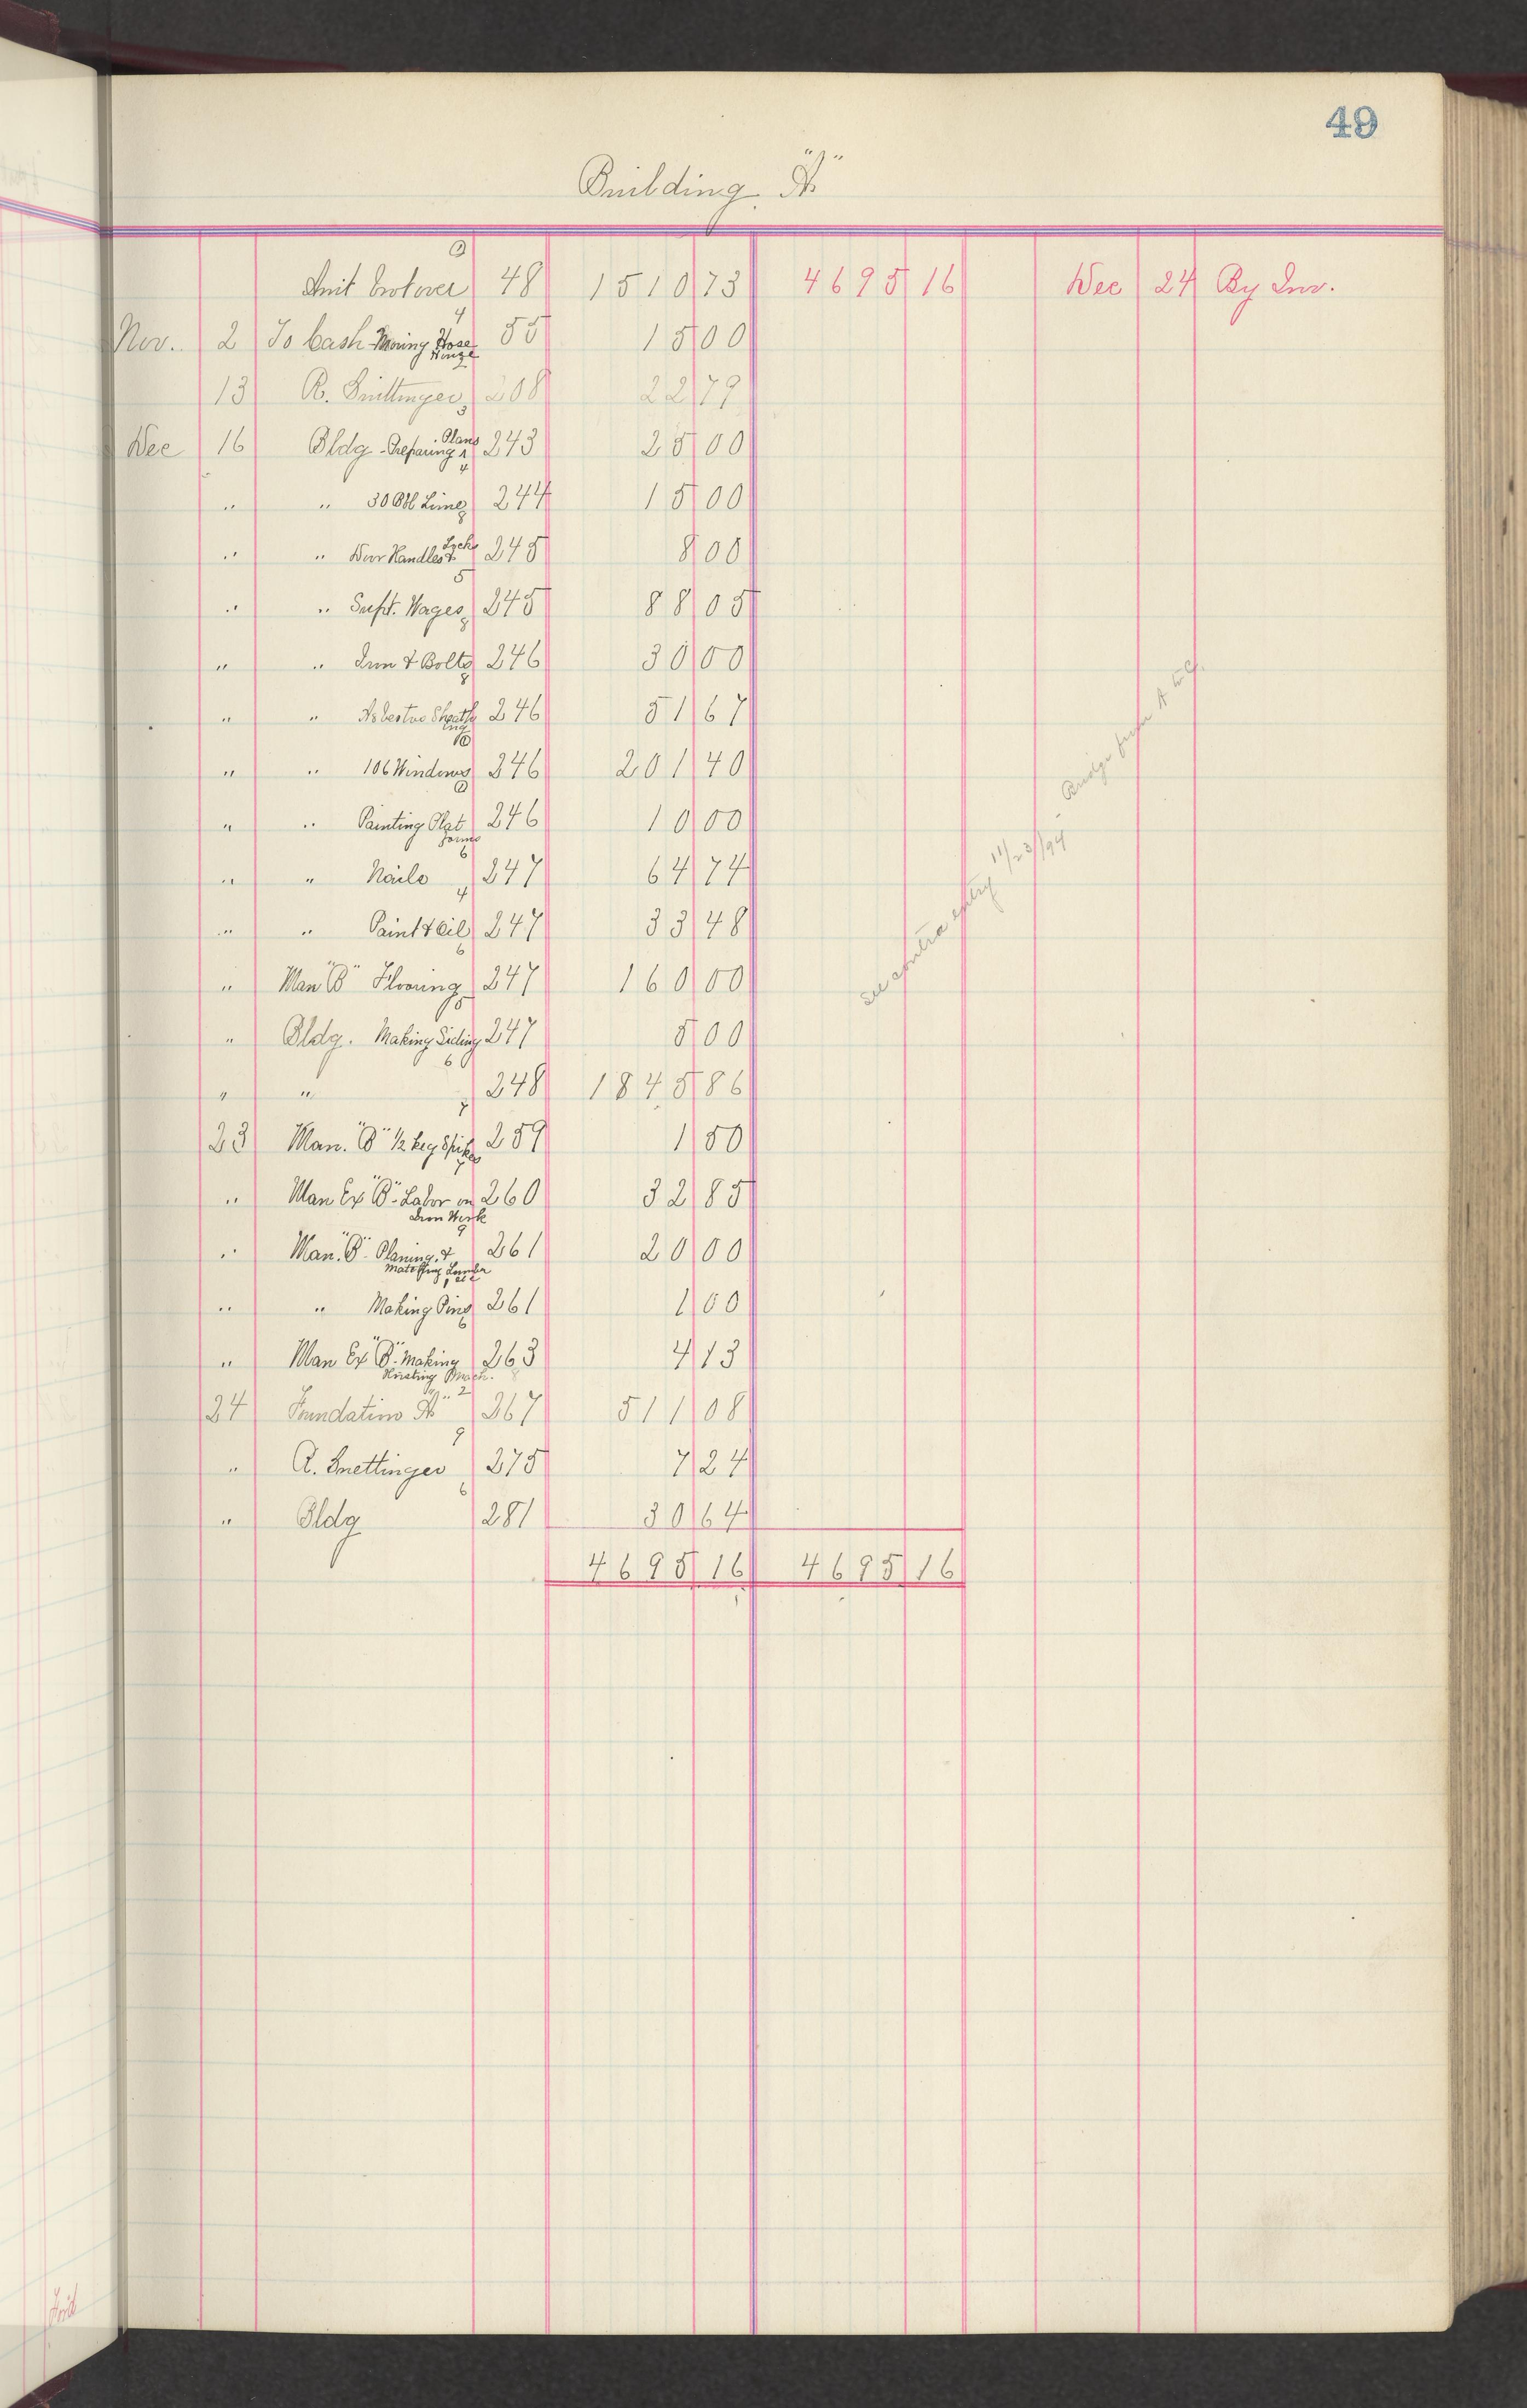 49
Building "A"
Amt Brot over 48 1510 73 4695 16 Dec 24 By Inv.
Nov. 2 To Cash Moving Hose 55 15 00
13 R. 208 22 79
Dec 16 Bldg - Preparing Plans 243 25 00
" " 30 Bbl Lime 244 15 00
" " Door Handles & Locks 245 8 00
" " Supt. Wages 245 88 05
" " Iron & Bolts 246 30 00
" " Asbestos Sheathing 246 51 67
" " 106 Windows 246 201 40
" " Painting Platforms 246 10 00
" " Nails 247 64 74
" " Paint & Oil 247 33 48
" Man "B" Flooring 247 160 00
" Bldg. Making Siding 247 5 00
" " 248 1845 86
23 Man. "B" 1/2 keg Spikes 259 1 50
" Man Ex "B" - Labor on Iron Work 260 32 85
" Man. "B" - Planing & Matching Lumber 261 20 00
" " Making Pins 261 1 00
" Man Ex "B" - Making Hoisting Mach. 263 4 13
24 Foundation "A" 267 511 08
" R. 275 7 24
" Bldg 281 30 64
4695 16 4695 16
See contra entry 11/23/94 - Bridge from A to G.